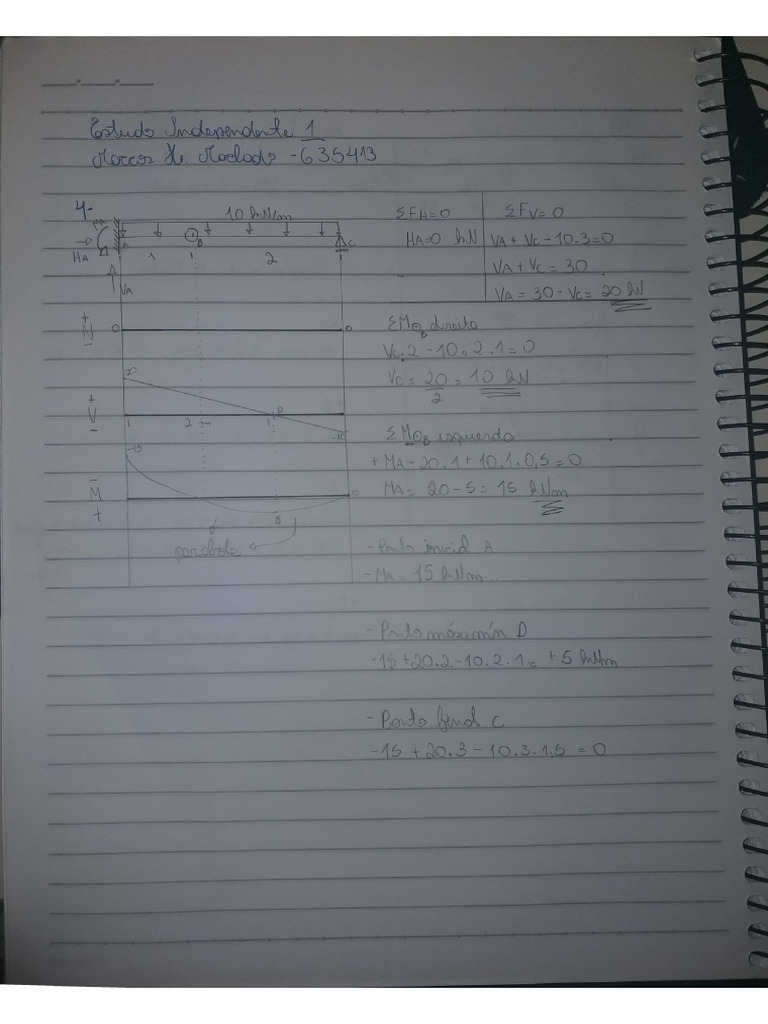 Estudo Independente 1
Marcos H. Machado - 635413
4-
10 kN/m
MA
HA
A
B
C
1 1 2
VA
ΣFH=0
HA=0 kN
ΣFV=0
VA + VC - 10.3=0
VA + VC = 30
VA = 30 - VC = 20 kN
+
N
-
0
0
ΣMOB direita
VC.2 - 10.2.1=0
VC = 20 = 10 kN
2
20
+
V
-
1
2
1
D
-10
ΣMOB esquerda
+ MA - 20.1 + 10.1.0,5=0
MA= 20-5= 15 kNm
-15
-
M
+
0
5
parábola
- Ponto inicial A
- MA = 15 kNm
- Ponto máx mín D
-15+20.2-10.2.1= +5 kNm
- Ponto final C
-15 + 20.3 - 10.3.1,5 = 0